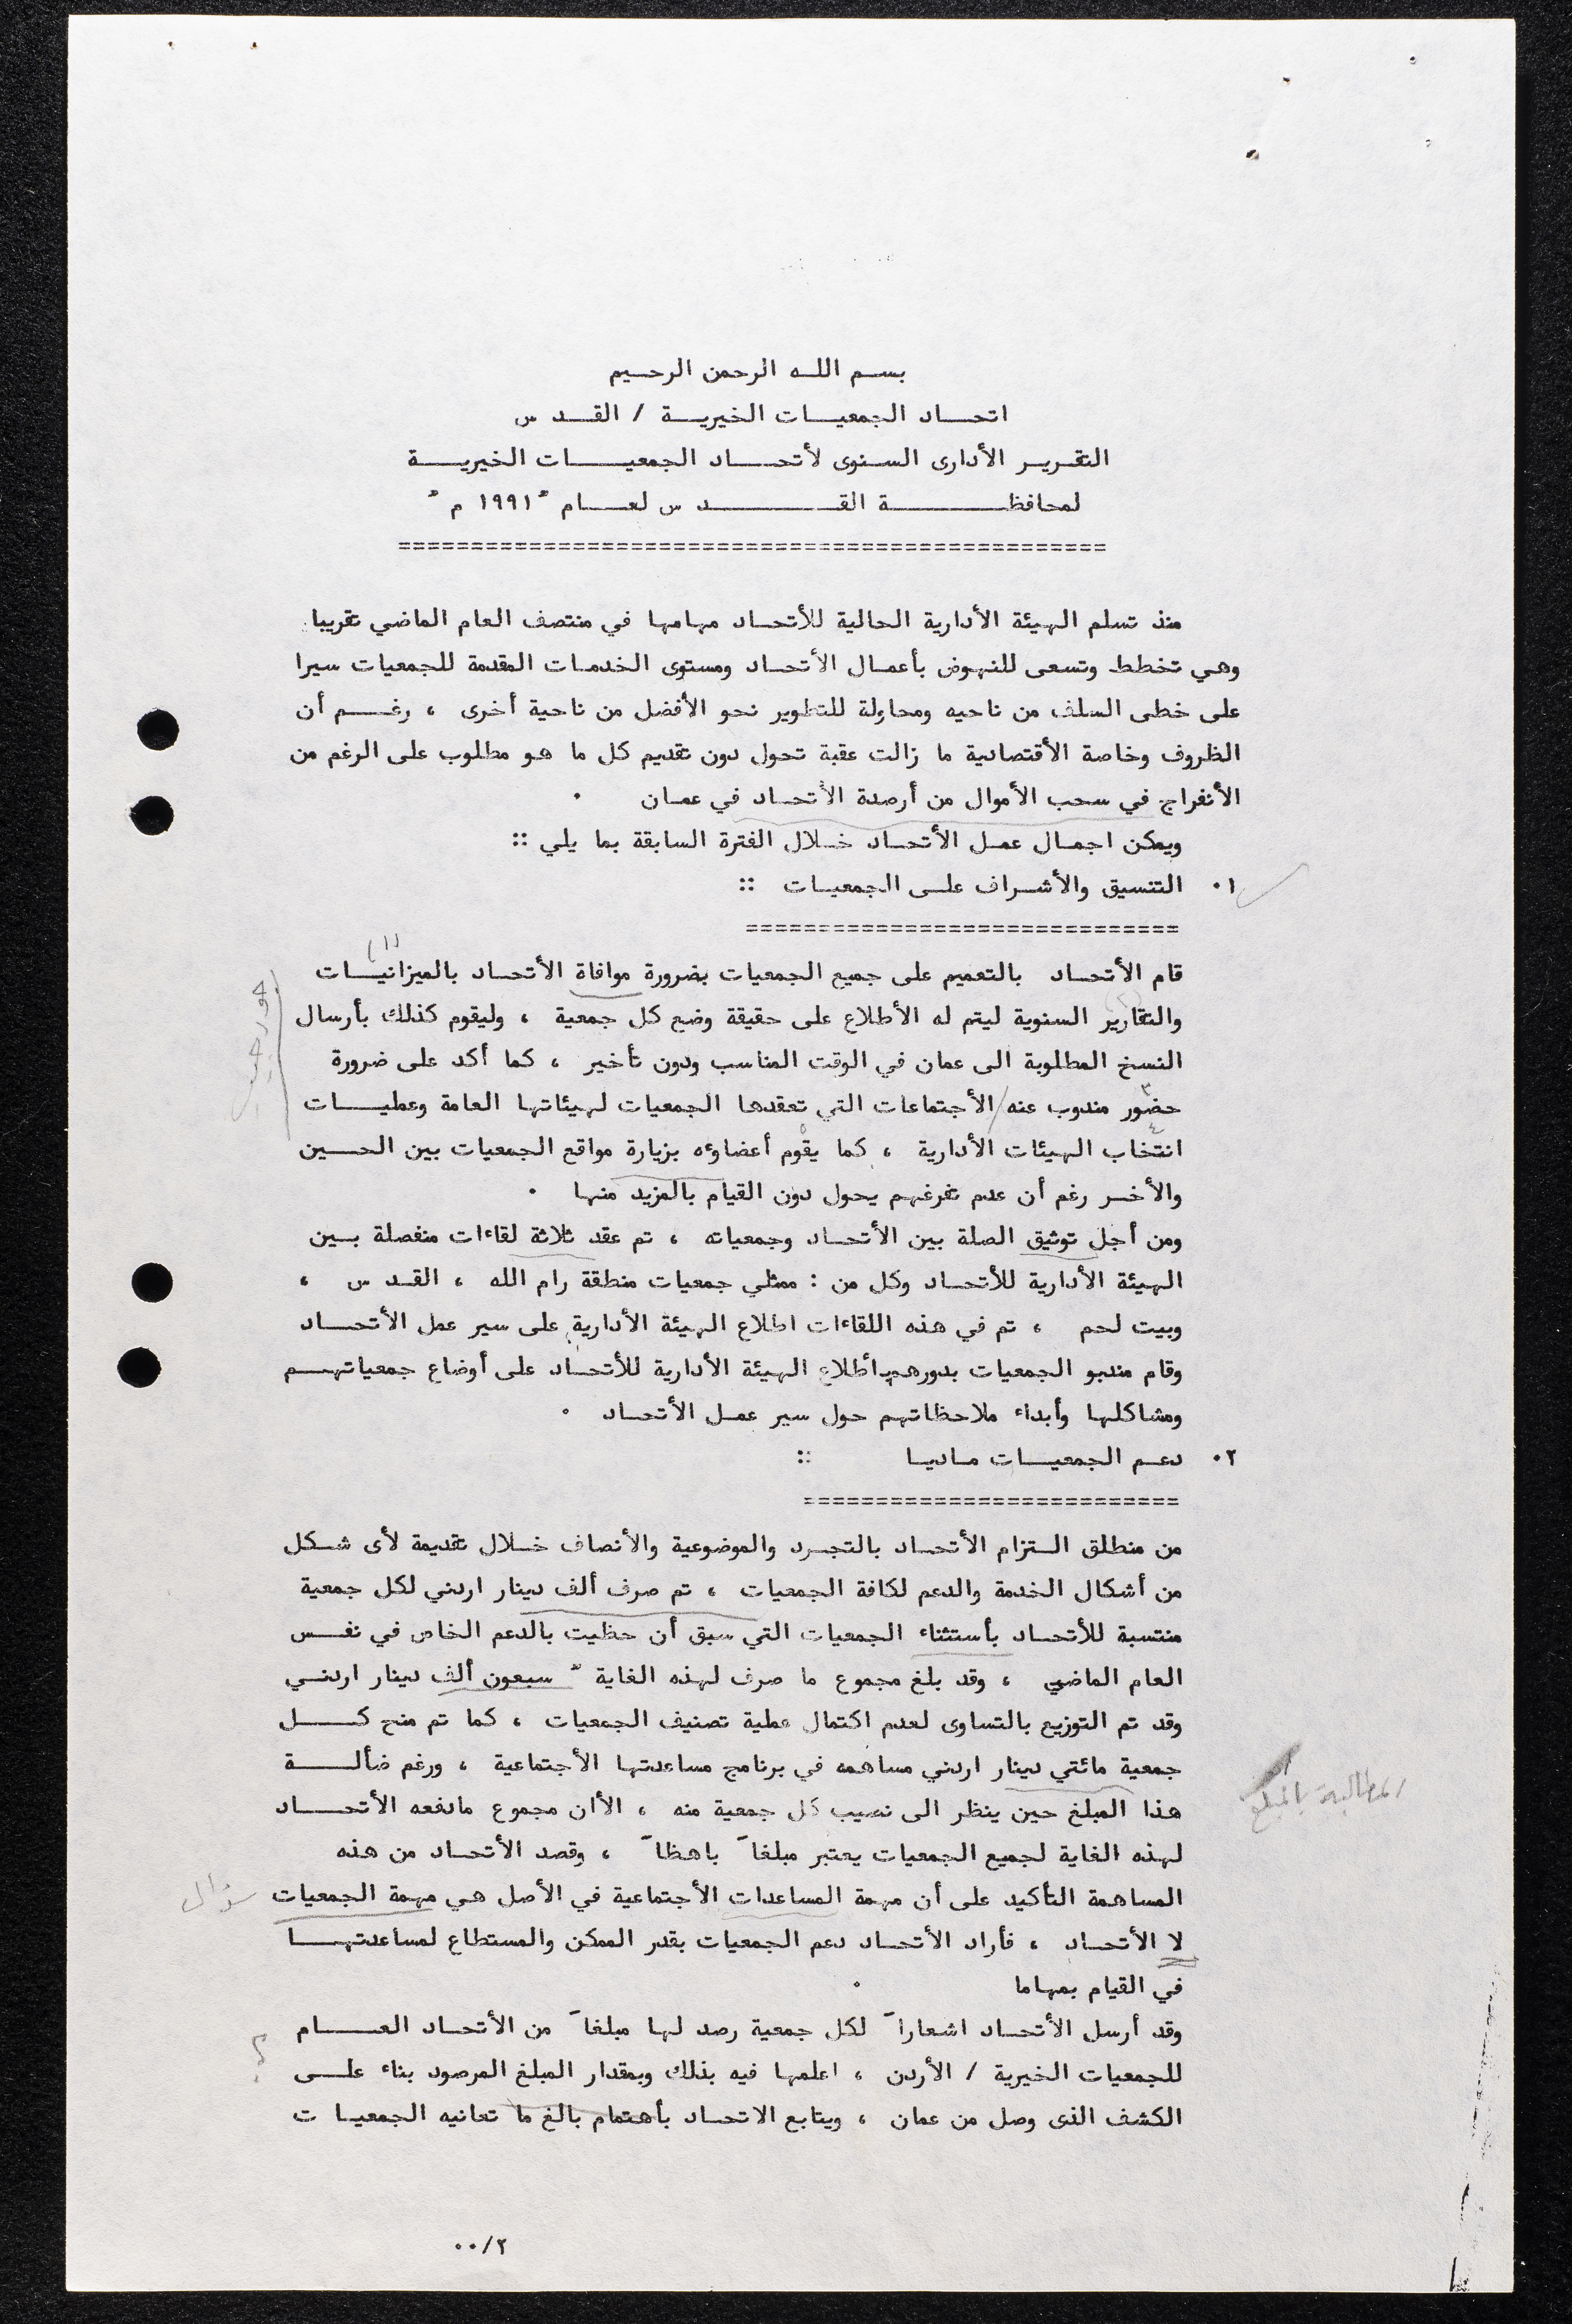 بسم الله الرحمن الرحيم
اتحاد الجمعيات الخيرية / القدس
التقرير الأدارى السنوى لأتحاد الجمعيات الخيرية
لمحافظة القدس لعام " ١٩٩١ م "
================================================
منذ تسلم الهيئة الأدارية الحالية للأتحاد مهامها في منتصف العام الماضي تقريبا
وهي تخطط وتسعى للنهوض بأعمال الأتحاد ومستوى الخدمات المقدمة للجمعيات سيرا
على خطى السلف من ناحيه ومحاولة للتطوير نحو الأفضل من ناحية أخرى ، رغم أن
الظروف وخاصة الأقتصادية ما زالت عقبة تحول دون تقديم كل ما هو مطلوب على الرغم من
الأنفراج في سحب الأموال من أرصدة الأتحاد في عمان .
ويمكن اجمال عمل الأتحاد خلال الفترة السابقة بما يلي ::
١. التنسيق والأشراف على الجمعيات ::
==============================
(١)
قام الأتحاد بالتعميم على جميع الجمعيات بضرورة موافاة الأتحاد بالميزانيات
والتقارير السنوية ليتم له الأطلاع على حقيقة وضع كل جمعية ، وليقوم كذلك بأرسال
النسخ المطلوبة الى عمان في الوقت المناسب ودون تأخير ، كما أكد على ضرورة
حضور مندوب عنه/الأجتماعات التي تعقدها الجمعيات لهيئاتها العامة وعمليات
انتخاب الهيئات الأدارية ، كما يقوم أعضاوءه بزيارة مواقع الجمعيات بين الحسين
والأخر رغم أن عدم تفرغهم يحول دون القيام بالمزيد منها .
ومن أجل توثيق الصلة بين الأتحاد وجمعياته ، تم عقد ثلاثة لقاءات منفصلة بين
الهيئة الأدارية للأتحاد وكل من : ممثلي جمعيات منطقة رام الله ، القدس ،
وبيت لحم ، تم في هذه اللقاءات اطلاع الهيئة الأدارية على سير عمل الأتحاد
وقام مندبو الجمعيات بدورهم بأطلاع الهيئة الأدارية للأتحاد على أوضاع جمعياتهم
ومشاكلها وأبداء ملاحظاتهم حول سير عمل الأتحاد .
٢. دعم الجمعيات ماديا ::
==========================
من منطلق التزام الأتحاد بالتجرد والموضوعية والأنصاف خلال تقديمة لأى شكل
من أشكال الخدمة والدعم لكافة الجمعيات ، تم صرف ألف دينار اردني لكل جمعية
منتسبة للأتحاد بأستثناء الجمعيات التي سبق أن حظيت بالدعم الخاص في نفس
العام الماضي ، وقد بلغ مجموع ما صرف لهذه الغاية " سبعون ألف دينار اردني
وقد تم التوزيع بالتساوى لعدم اكتمال عملية تصنيف الجمعيات ، كما تم منح كل
جمعية مائتي دينار اردني مساهمه في برنامج مساعدتها الأجتماعية ، ورغم ضألة
هذا المبلغ حين ينظر الى نصيب كل جمعية منه ، الأأن مجموع مادفعه الأتحاد
لهذه الغاية لجميع الجمعيات يعتبر مبلغاً باهظاً ، وقصد الأتحاد من هذه
المساهمة التأكيد على أن مهمة المساعدات الأجتماعية في الأصل هي مهمة الجمعيات
سؤال
لا الأتحاد ، فأراد الأتحاد دعم الجمعيات بقدر الممكن والمستطاع لمساعدتها
في القيام بمهاما .
وقد أرسل الأتحاد اشعاراً لكل جمعية رصد لها مبلغاً من الأتحاد العام
للجمعيات الخيرية / الأردن ، اعلمها فيه بذلك وبمقدار المبلغ المرصود بناء على
الكشف الذى وصل من عمان ، ويتابع الاتحاد بأهتمام بالغ ما تعانيه الجمعيات
٠٠/٢